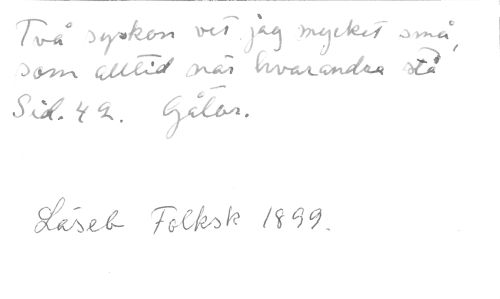 Två syskon vet jag mycket små,
som alltid när hvarandra stå
Sid. 42. Gåtor.
Läseb Folksk 1899.